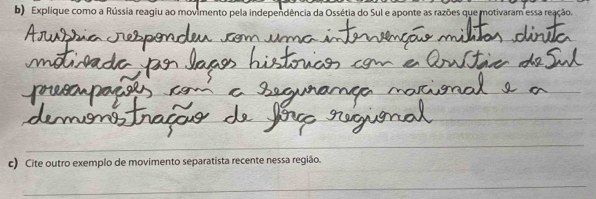 b) Explique como a Rússia reagiu ao movimento pela independência da Ossétia do Sul e aponte as razões que motivaram essa reação.
A russia respondeu com uma intervenção militar direta
motivada por laços históricos com a do Sul
preocupações com a segurança nacional e a
demonstração de força regional
c) Cite outro exemplo de movimento separatista recente nessa região.